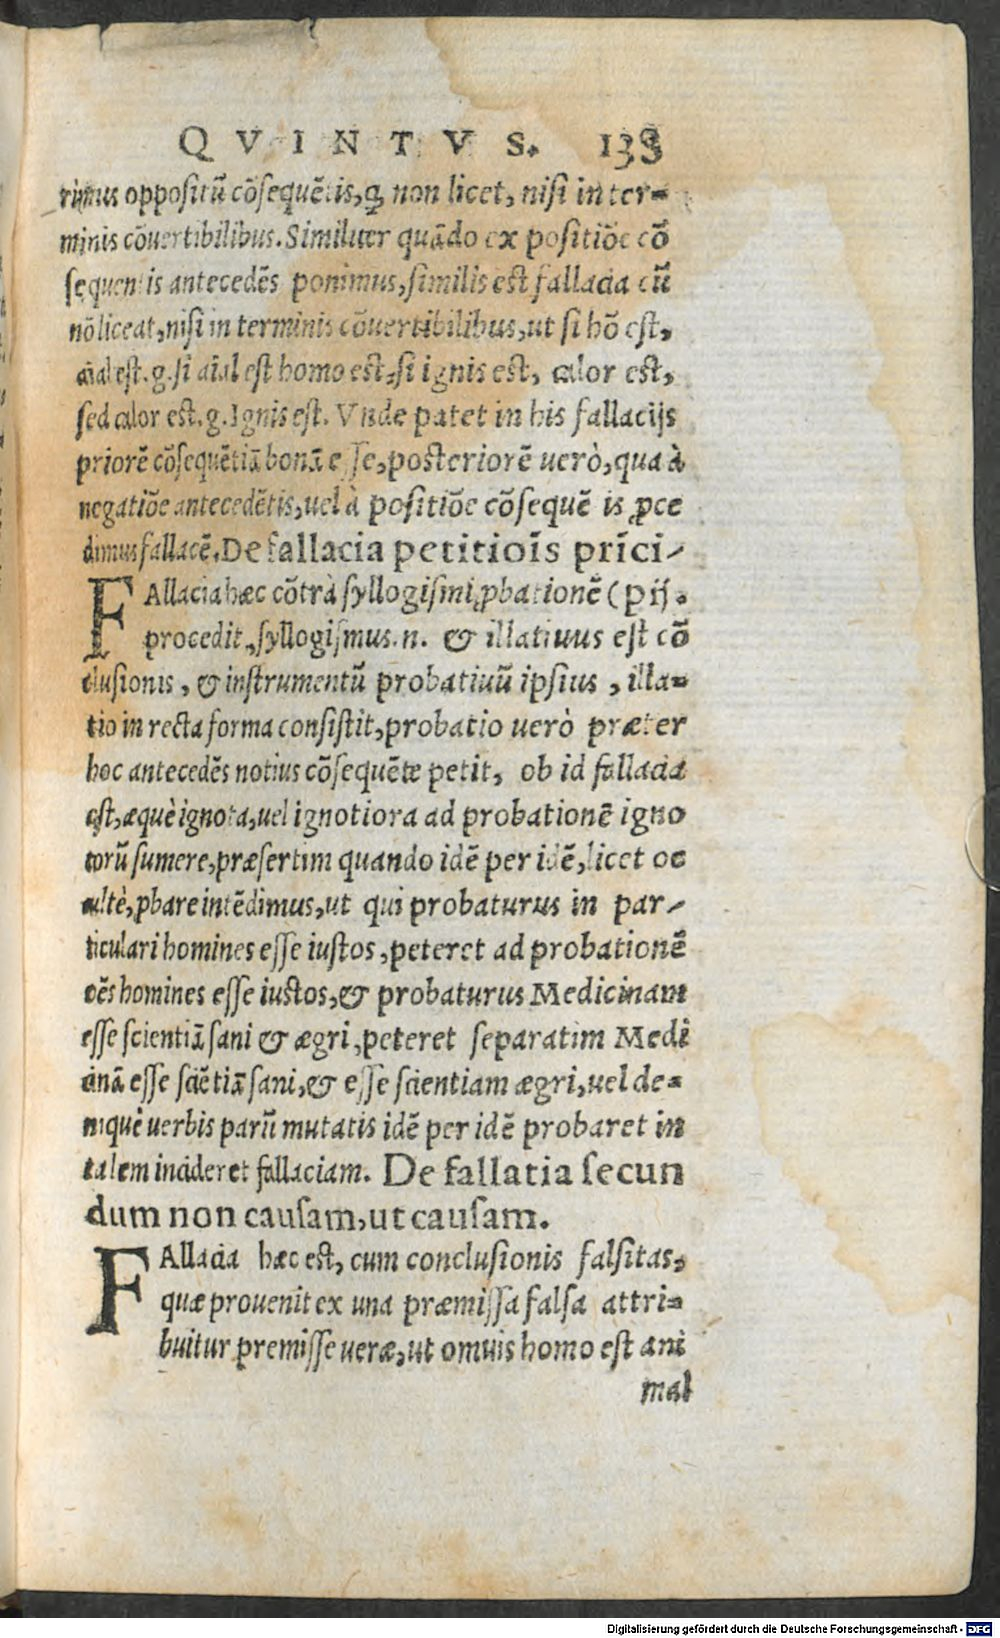 QVINTVS. 133
rimus oppositū cōsequētis, ꝗ non licet, nisi in ter-
minis cōuertibilibus. Similiter quādo ex positiōe cō
sequentis antecedēs ponimus, similis est fallacia cū
nō liceat, nisi in terminis cōuertibilibus, ut si hō est,
aīal est. g. si aīal est homo est, si ignis est, calor est,
sed calor est. g. Ignis est. Vnde patet in his fallacijs
priorē cōsequētiā bonā esse, posteriorē uerò, qua à
negatiōe antecedētis, uel à positiōe cōsequē is ꝓce
dimus fallacē. De fallacia petitioīs prīci-
FAllacia hæc cōtrà syllogismi ꝓbationē (pij.
procedit, syllogismus .n. & illatiuus est cō
clusionis, & instrumentū probatiuū ipsius, illa-
tio in recta forma consistit, probatio uerò præter
hoc antecedēs notius cōsequēte petit, ob id fallacia
est, æquè ignota, uel ignotiora ad probationē igno
torū sumere, præsertim quando idē per idē, licet oc
cultè, ꝓbare intēdimus, ut qui probaturus in par-
ticulari homines esse iustos, peteret ad probationē
oēs homines esse iustos, & probaturus Medicinam
esse scientiā sani & ægri, peteret separatim Medi
cinā esse sciētiā sani, & esse scientiam ægri, uel de-
niquè uerbis parū mutatis idē per idē probaret in
talem incideret fallaciam. De fallatia secun
dum non causam, ut causam.
FAllacia hæc est, cum conclusionis falsitas,
quæ prouenit ex una præmissa falsa attri-
buitur premisse ueræ, ut omuis homo est ani
mal
Digitalisierung gefördert durch die Deutsche Forschungsgemeinschaft - DFG